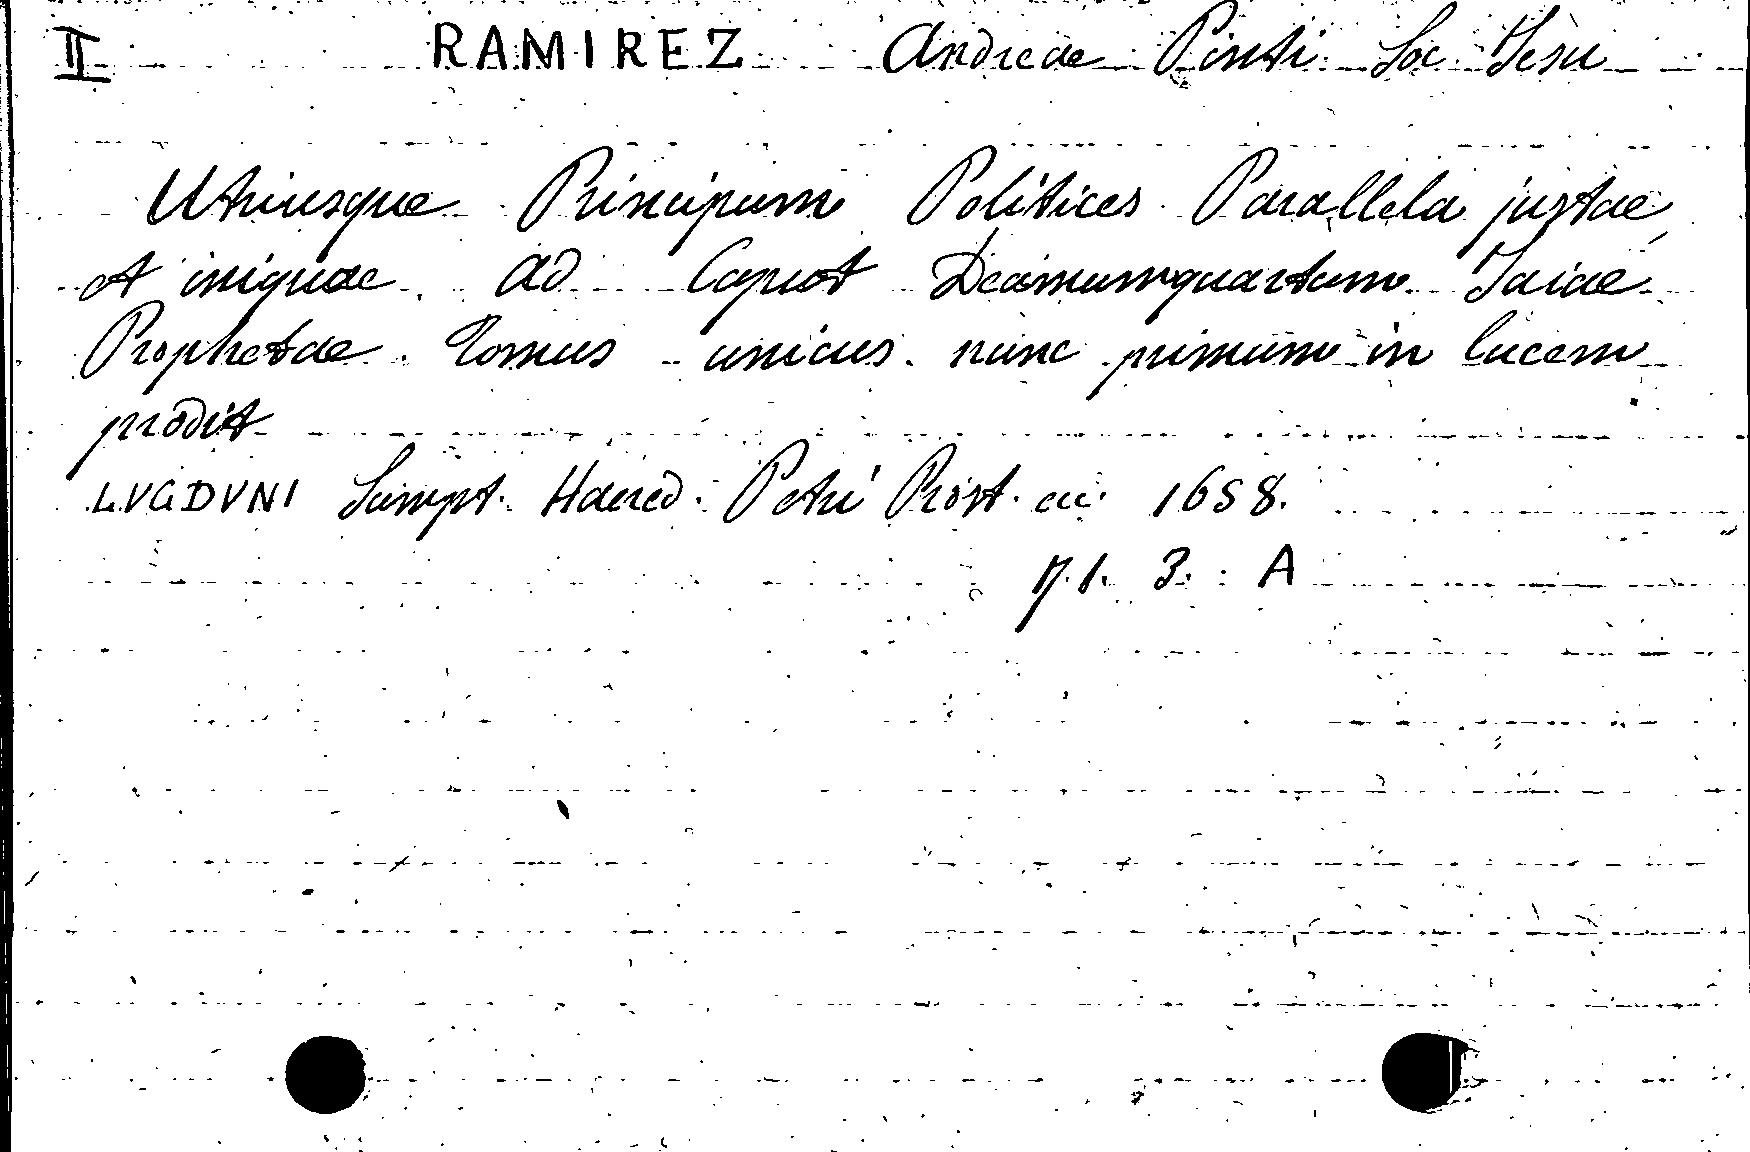 II RAMIREZ Andreae Pinti Soc Jesu
Utriusque Principum Politices Parallela justae
et iniquae. Ad Caput Decimumquartum Isaiae
Prophetae. Tomus unicus. nunc primum in lucem
prodit
LVGDVNI Sumpt. Haered. Petri Prost. etc. 1658.
3. A